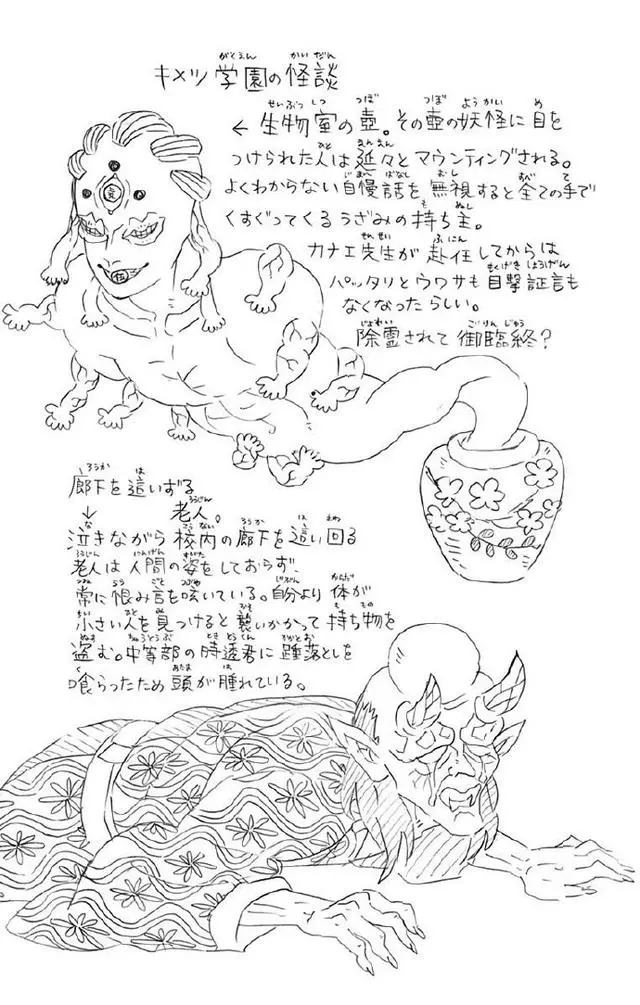 キメツ学園の怪談
← 生物室の壺。その壺の妖怪に目を
つけられた人は延々とマウンティングされる。
よくわからない自慢話を無視すると全ての手で
くすぐってくるうざみの持ち主。
カナエ先生が赴任してからは
パッタリとウワサも目撃証言も
なくなったらしい。
除霊されて御臨終?
廊下を這いずる
老人。
↓
泣きながら校内の廊下を這い回る
老人は人間の姿をしておらず、
常に恨み言を呟いている。自分より体が
小さい人を見つけると襲いかかって持ち物を
盗む。中等部の時透君に踵落としを
喰らったため頭が腫れている。